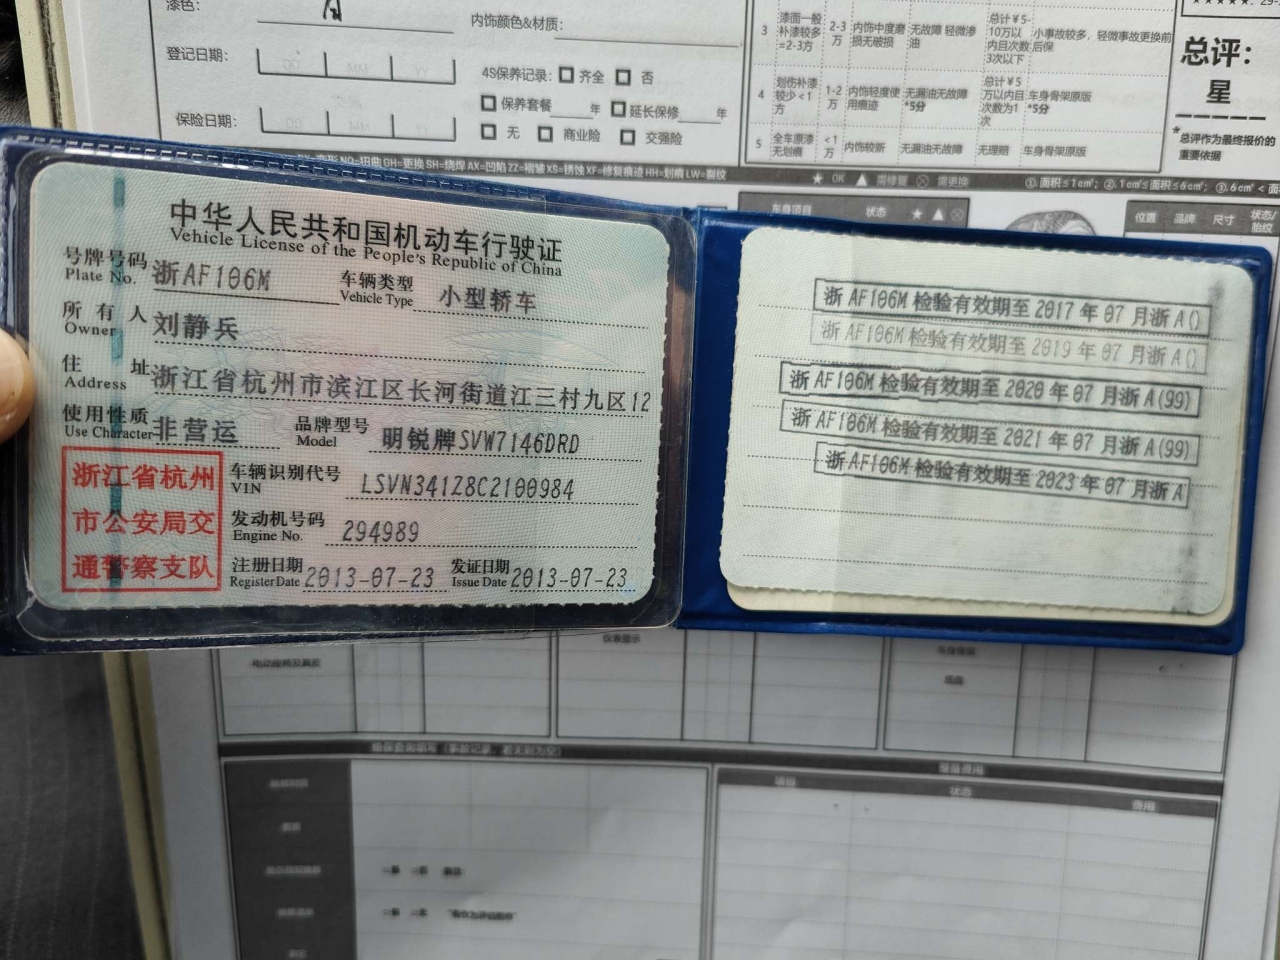 漆色：
内饰颜色&材质：
登记日期：
YY MM DD
4S保养记录： 齐全 否
保养套餐____年 延长保修____年
保险日期：
无 商业险 交强险
3 漆面一般补漆较多=2-3方 2-3万 内饰中度磨损无破损 无故障 轻微渗油 总计￥5-10万以内且次数3次以下 小事故较多，轻微事故更换前后保
4 划伤补漆较少<1方 1-2万 内饰轻度使用痕迹 无漏油无故障*5分 总计￥5万以内且次数为1次 车身骨架原版*5分
5 全车原漆无划痕 <1万 内饰较新 无漏油无故障 无理赔 车身骨架原版
总评：
星
*总评作为最终报价的重要依据
扭曲 GH=更换 SH=烧焊 AX=凹陷 ZZ=褶皱 XS=锈蚀 XF=修复痕迹 HH=划痕 LW=裂纹
★ OK ▲ 需修复 ⊗ 需更换
①.面积≤1c㎡; ②.1c㎡≤面积≤6c㎡; ③.6c㎡<面
车身项目 状态 ★ ▲ ⊗
位置 品牌 尺寸 状态/胎纹
中华人民共和国机动车行驶证
Vehicle License of the People's Republic of China
号牌号码 浙AF106M 车辆类型 小型轿车
Plate No. Vehicle Type
所有人 刘静兵
Owner
住址 浙江省杭州市滨江区长河街道江三村九区12
Address
使用性质 非营运 品牌型号 明锐牌SVW7146DRD
Use Character Model
浙江省杭州
市公安局交
通警察支队
车辆识别代号 LSVN341Z8C2100984
VIN
发动机号码 294989
Engine No.
注册日期 2013-07-23 发证日期 2013-07-23
Register Date Issue Date
浙AF106M检验有效期至2017年07月浙A()
浙AF106M检验有效期至2019年07月浙A()
浙AF106M检验有效期至2020年07月浙A(99)
浙AF106M检验有效期至2021年07月浙A(99)
浙AF106M检验有效期至2023年07月浙A
仪表显示
车身骨架
项目 状态 费用